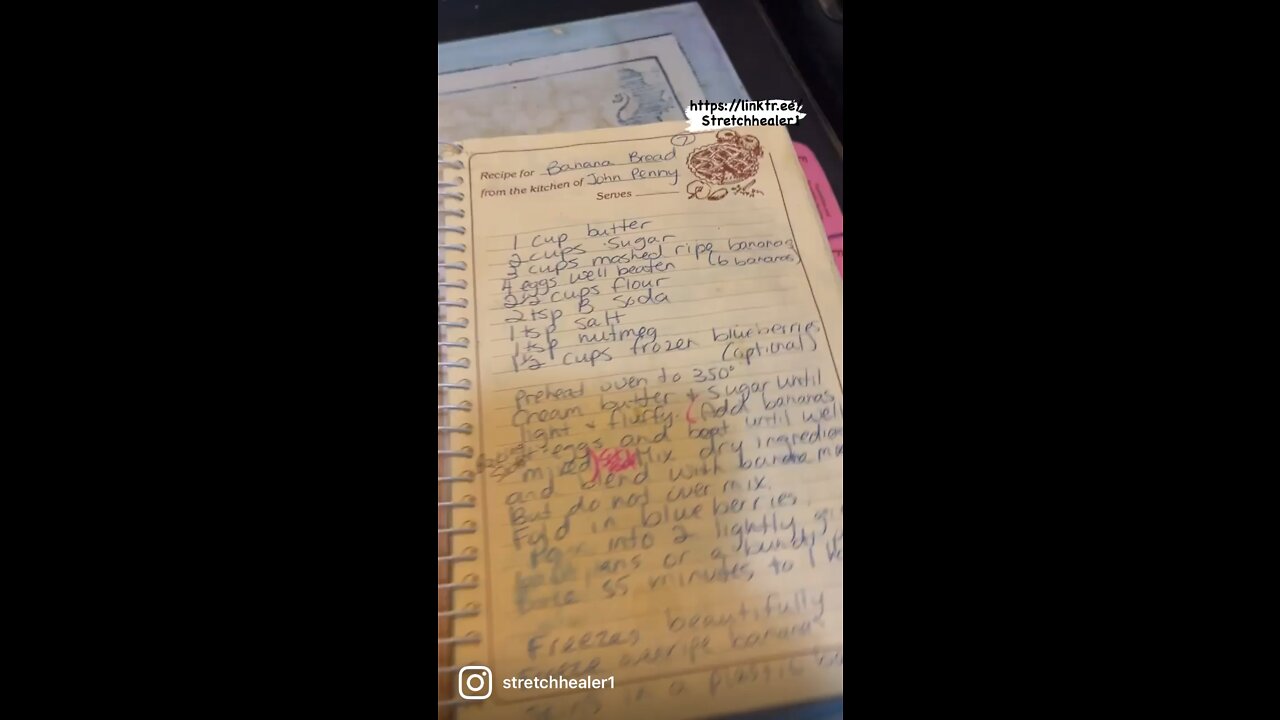 https://linktr.ee/
Stretchhealer1
Recipe for Banana Bread
from the kitchen of John Penny
Serves
1 cup butter
2 cups sugar
3 cups mashed ripe bananas
4 eggs well beaten (6 bananas)
2 1/2 cups flour
2 tsp B soda
1 tsp salt
1 tsp nutmeg
1 1/2 cups frozen blueberries
(optional)
preheat oven to 350°
Cream butter + sugar until
light + fluffy. (Add bananas
+ eggs and beat until well
mixed) Mix dry
and blend with banana
But do not over mix.
Fold in blueberries.
into 2 lightly
pans or a bundt
55 minutes to 1
Freezes beautifully
Freeze overripe bananas
in a plastic
stretchhealer1